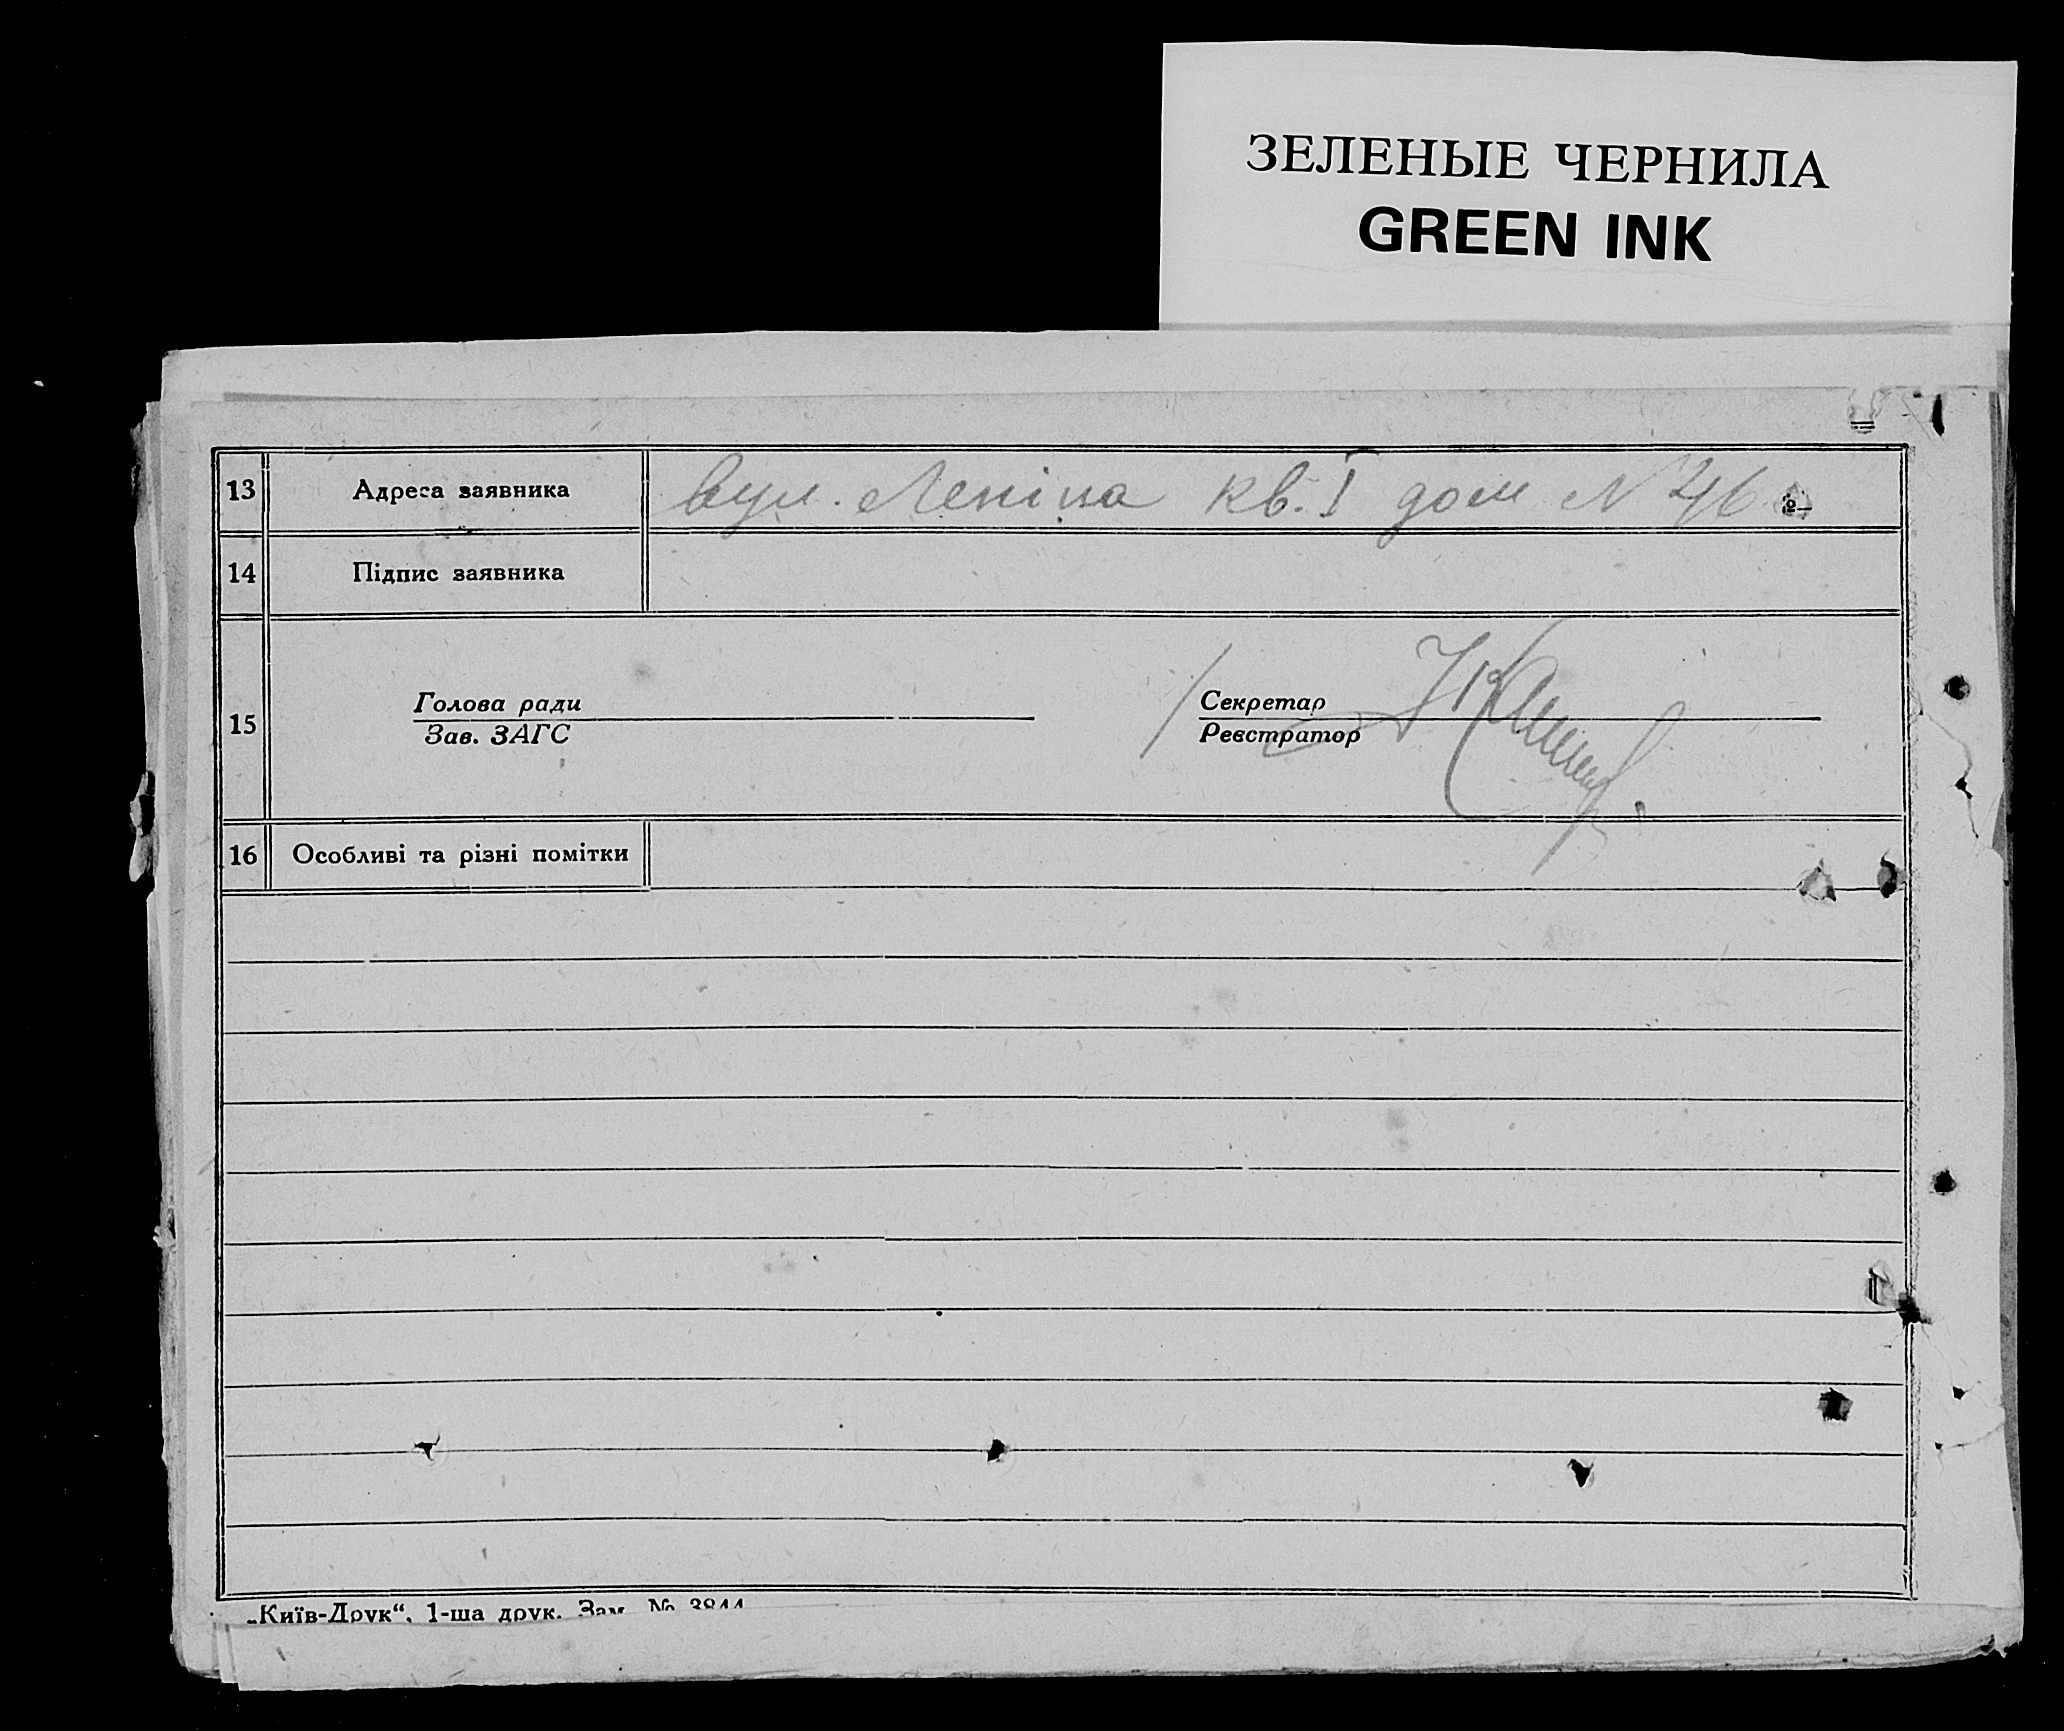 ЗЕЛЕНЫЕ ЧЕРНИЛА
GREEN INK
13 Адреса заявника вул. Леніна кв. I дом N 46
14 Підпис заявника
15 Голова ради
Зав. ЗАГС
Секретар
Реєстратор
16 Особливі та різні помітки
„Київ-Друк“, 1-ша друк. Зам. № 3844